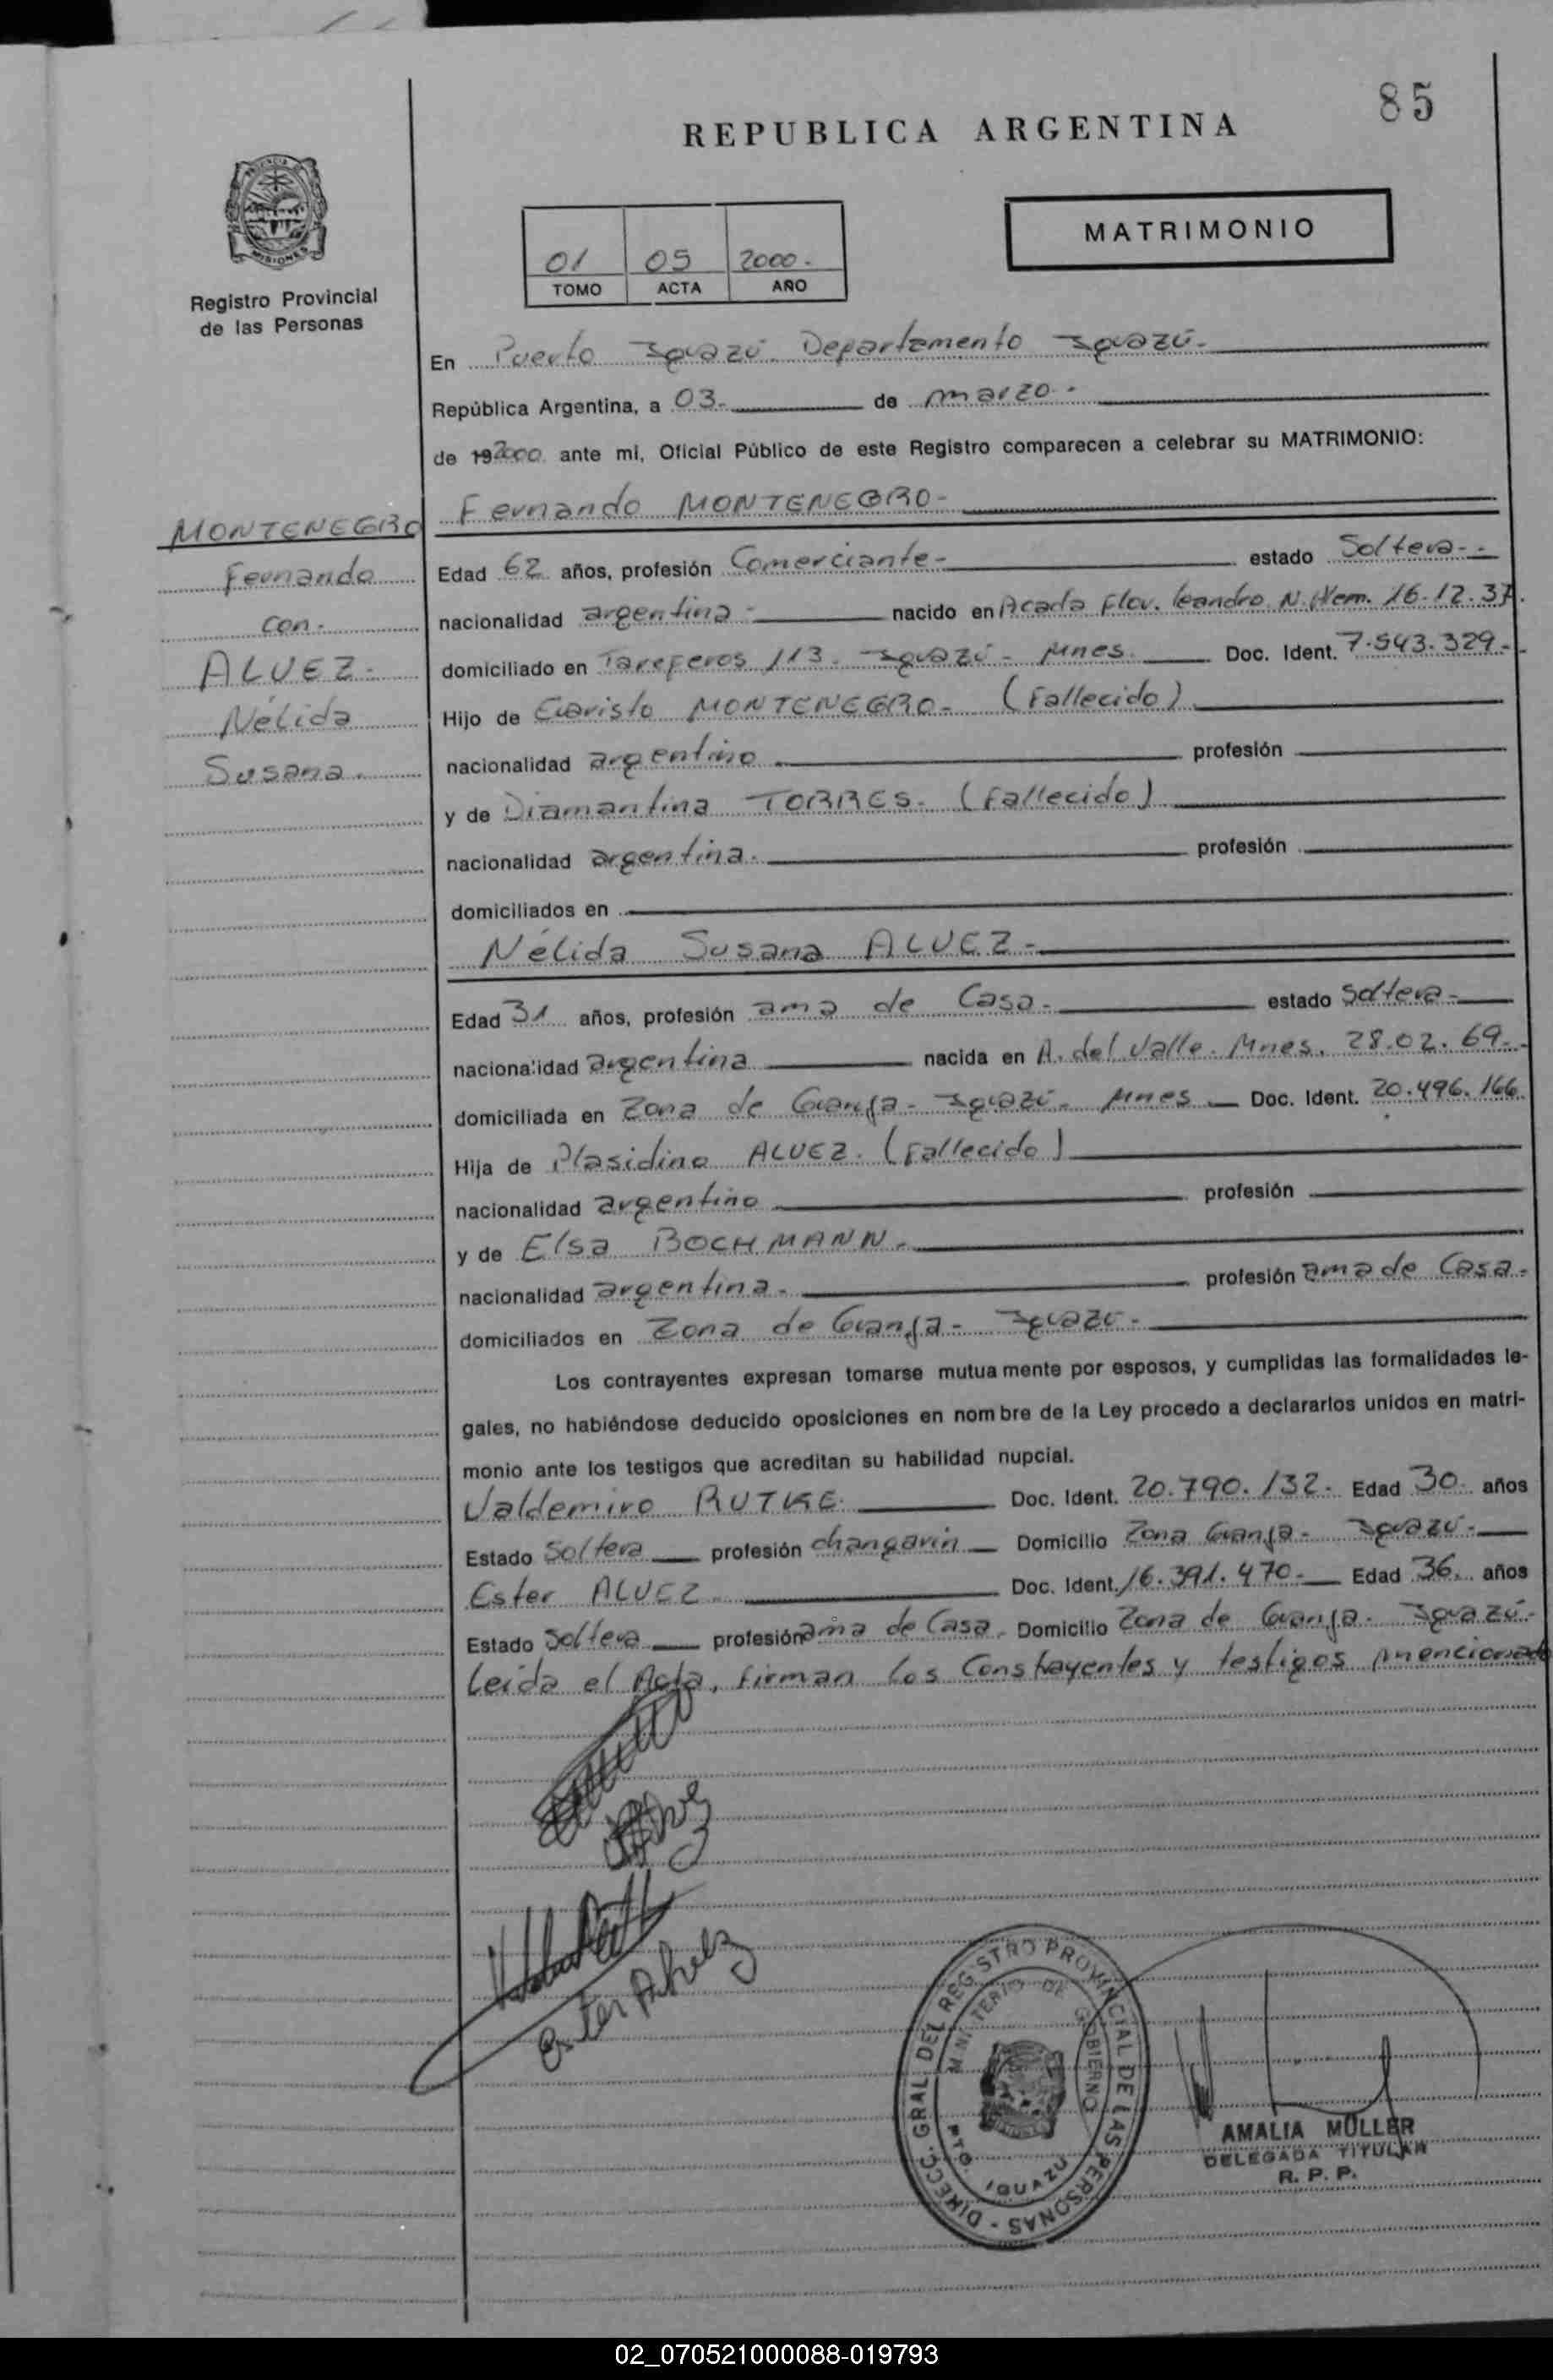 85
REPUBLICA ARGENTINA
MISIONES
Registro Provincial
de las Personas
01 05 2000.
TOMO ACTA AÑO
MATRIMONIO
En Puerto Iguazú. Departamento Iguazú.
República Argentina, a 03. de marzo.
de 192000 ante mi, Oficial Público de este Registro comparecen a celebrar su MATRIMONIO:
MONTENEGRO
Fernando
con.
ALVEZ.
Nélida
Susana.
Fernando MONTENEGRO-
Edad 62 años, profesión Comerciante- estado Soltero--
nacionalidad argentina- nacido en Leandro N. Alem. 16.12.37.
domiciliado en Tareferos 113. Iguazú- Mnes. Doc. Ident. 7.543.329.-
Hijo de Evaristo MONTENEGRO- (Fallecido)
nacionalidad argentino profesión
y de Diamantina TORRES. (Fallecido)
nacionalidad argentina. profesión
domiciliados en
Nélida Susana ALVEZ-
Edad 31 años, profesión ama de Casa- estado Soltera-
nacionalidad argentina nacida en A. del Valle. Mnes. 28.02.69.-
domiciliada en Zona de Granja- Iguazú- Mnes Doc. Ident. 20.496.166.
Hija de Plasidino ALVEZ. (Fallecido)
nacionalidad argentino profesión
y de Elsa BOCHMANN.
nacionalidad argentina. profesión ama de Casa.
domiciliados en Zona de Granja- Iguazú-
Los contrayentes expresan tomarse mutuamente por esposos, y cumplidas las formalidades le-
gales, no habiéndose deducido oposiciones en nombre de la Ley procedo a declararlos unidos en matri-
monio ante los testigos que acreditan su habilidad nupcial.
Valdemiro RUTKE. Doc. Ident. 20.790.132. Edad 30. años
Estado Soltero profesión changarin Domicilio Zona Granja- Iguazú-
Ester ALVEZ Doc. Ident. 16.391.470- Edad 36. años
Estado Soltera profesión ama de Casa. Domicilio Zona de Granja. Iguazú-
Leida el Acta, firman los Constrayentes y testigos mencionado
Ester Alvez
DIRECC. GRAL. DEL REGISTRO PROVINCIAL DE LAS PERSONAS -
MINISTERIO DE GOBIERNO
PTO. IGUAZU
AMALIA MÜLLER
DELEGADA TITULAR
R. P. P.
02_070521000088-019793